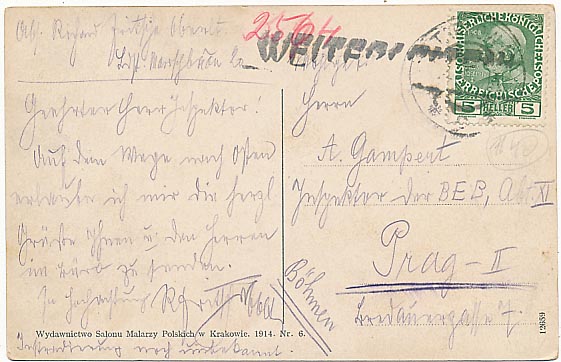 Abs. Richard Oberlt.
2564
WEITER
KAISERLICHE KÖNIGLICHE
ÖSTERREICHISCHE POST
5 HELLER 5
Geehrter Herr Inspektor!
Auf dem Wege nach Osten
erlaube ich mir die herzl
Grüße Ihnen u. den Herren
im Büro zu senden.
In Hochachtung
Instradierung noch unbekannt.
Herrn
A. Gampert
Inspektor der BEB, Abt. VI
Prag - II
Bredauergasse 7.
Böhmen
Wydawnictwo Salonu Malarzy Polskich w Krakowie. 1914. Nr. 6.
12659